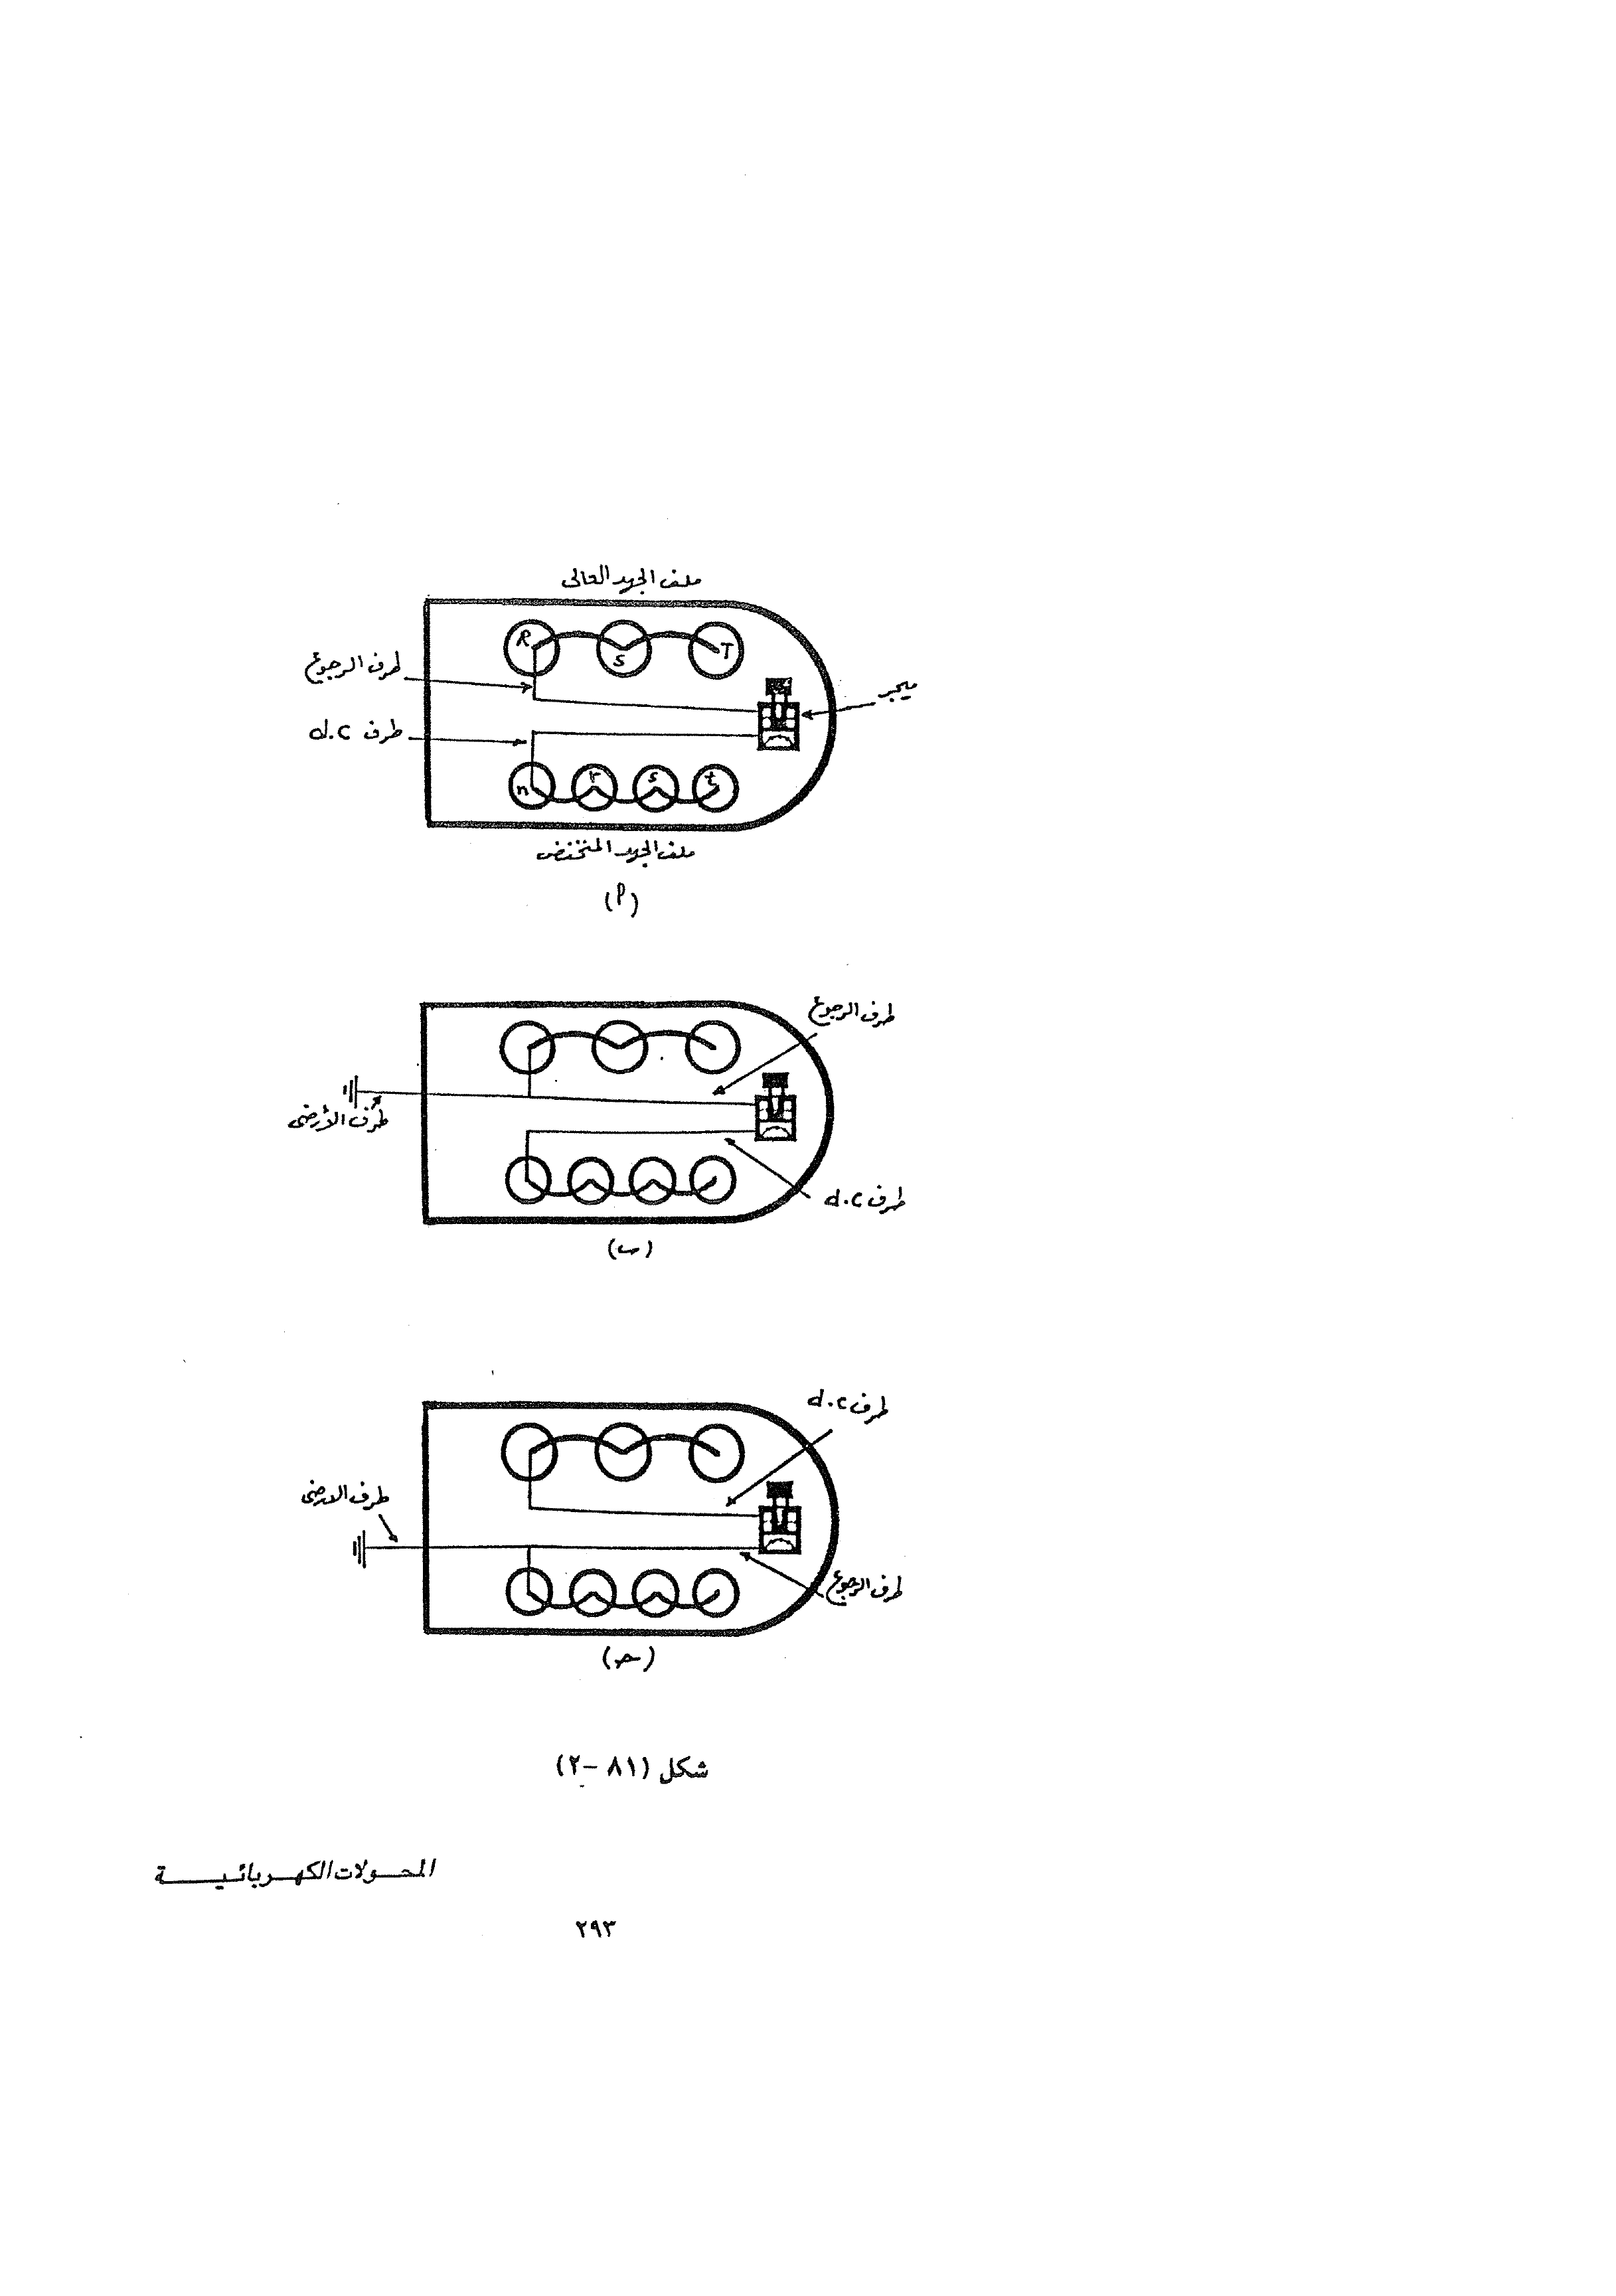 ملف الجهد العالى
R S T
طرف الرجوع
ميجر
طرف d.c
n r s t
ملف الجهد المنخفض
(أ)
طرف الرجوع
طرف الأرضى
طرف d.c
(ب)
طرف d.c
طرف الارضى
طرف الرجوع
(حـ)
شكل (٨١ -٢)
المحـولات الكهـربائيـة
٢٩٣